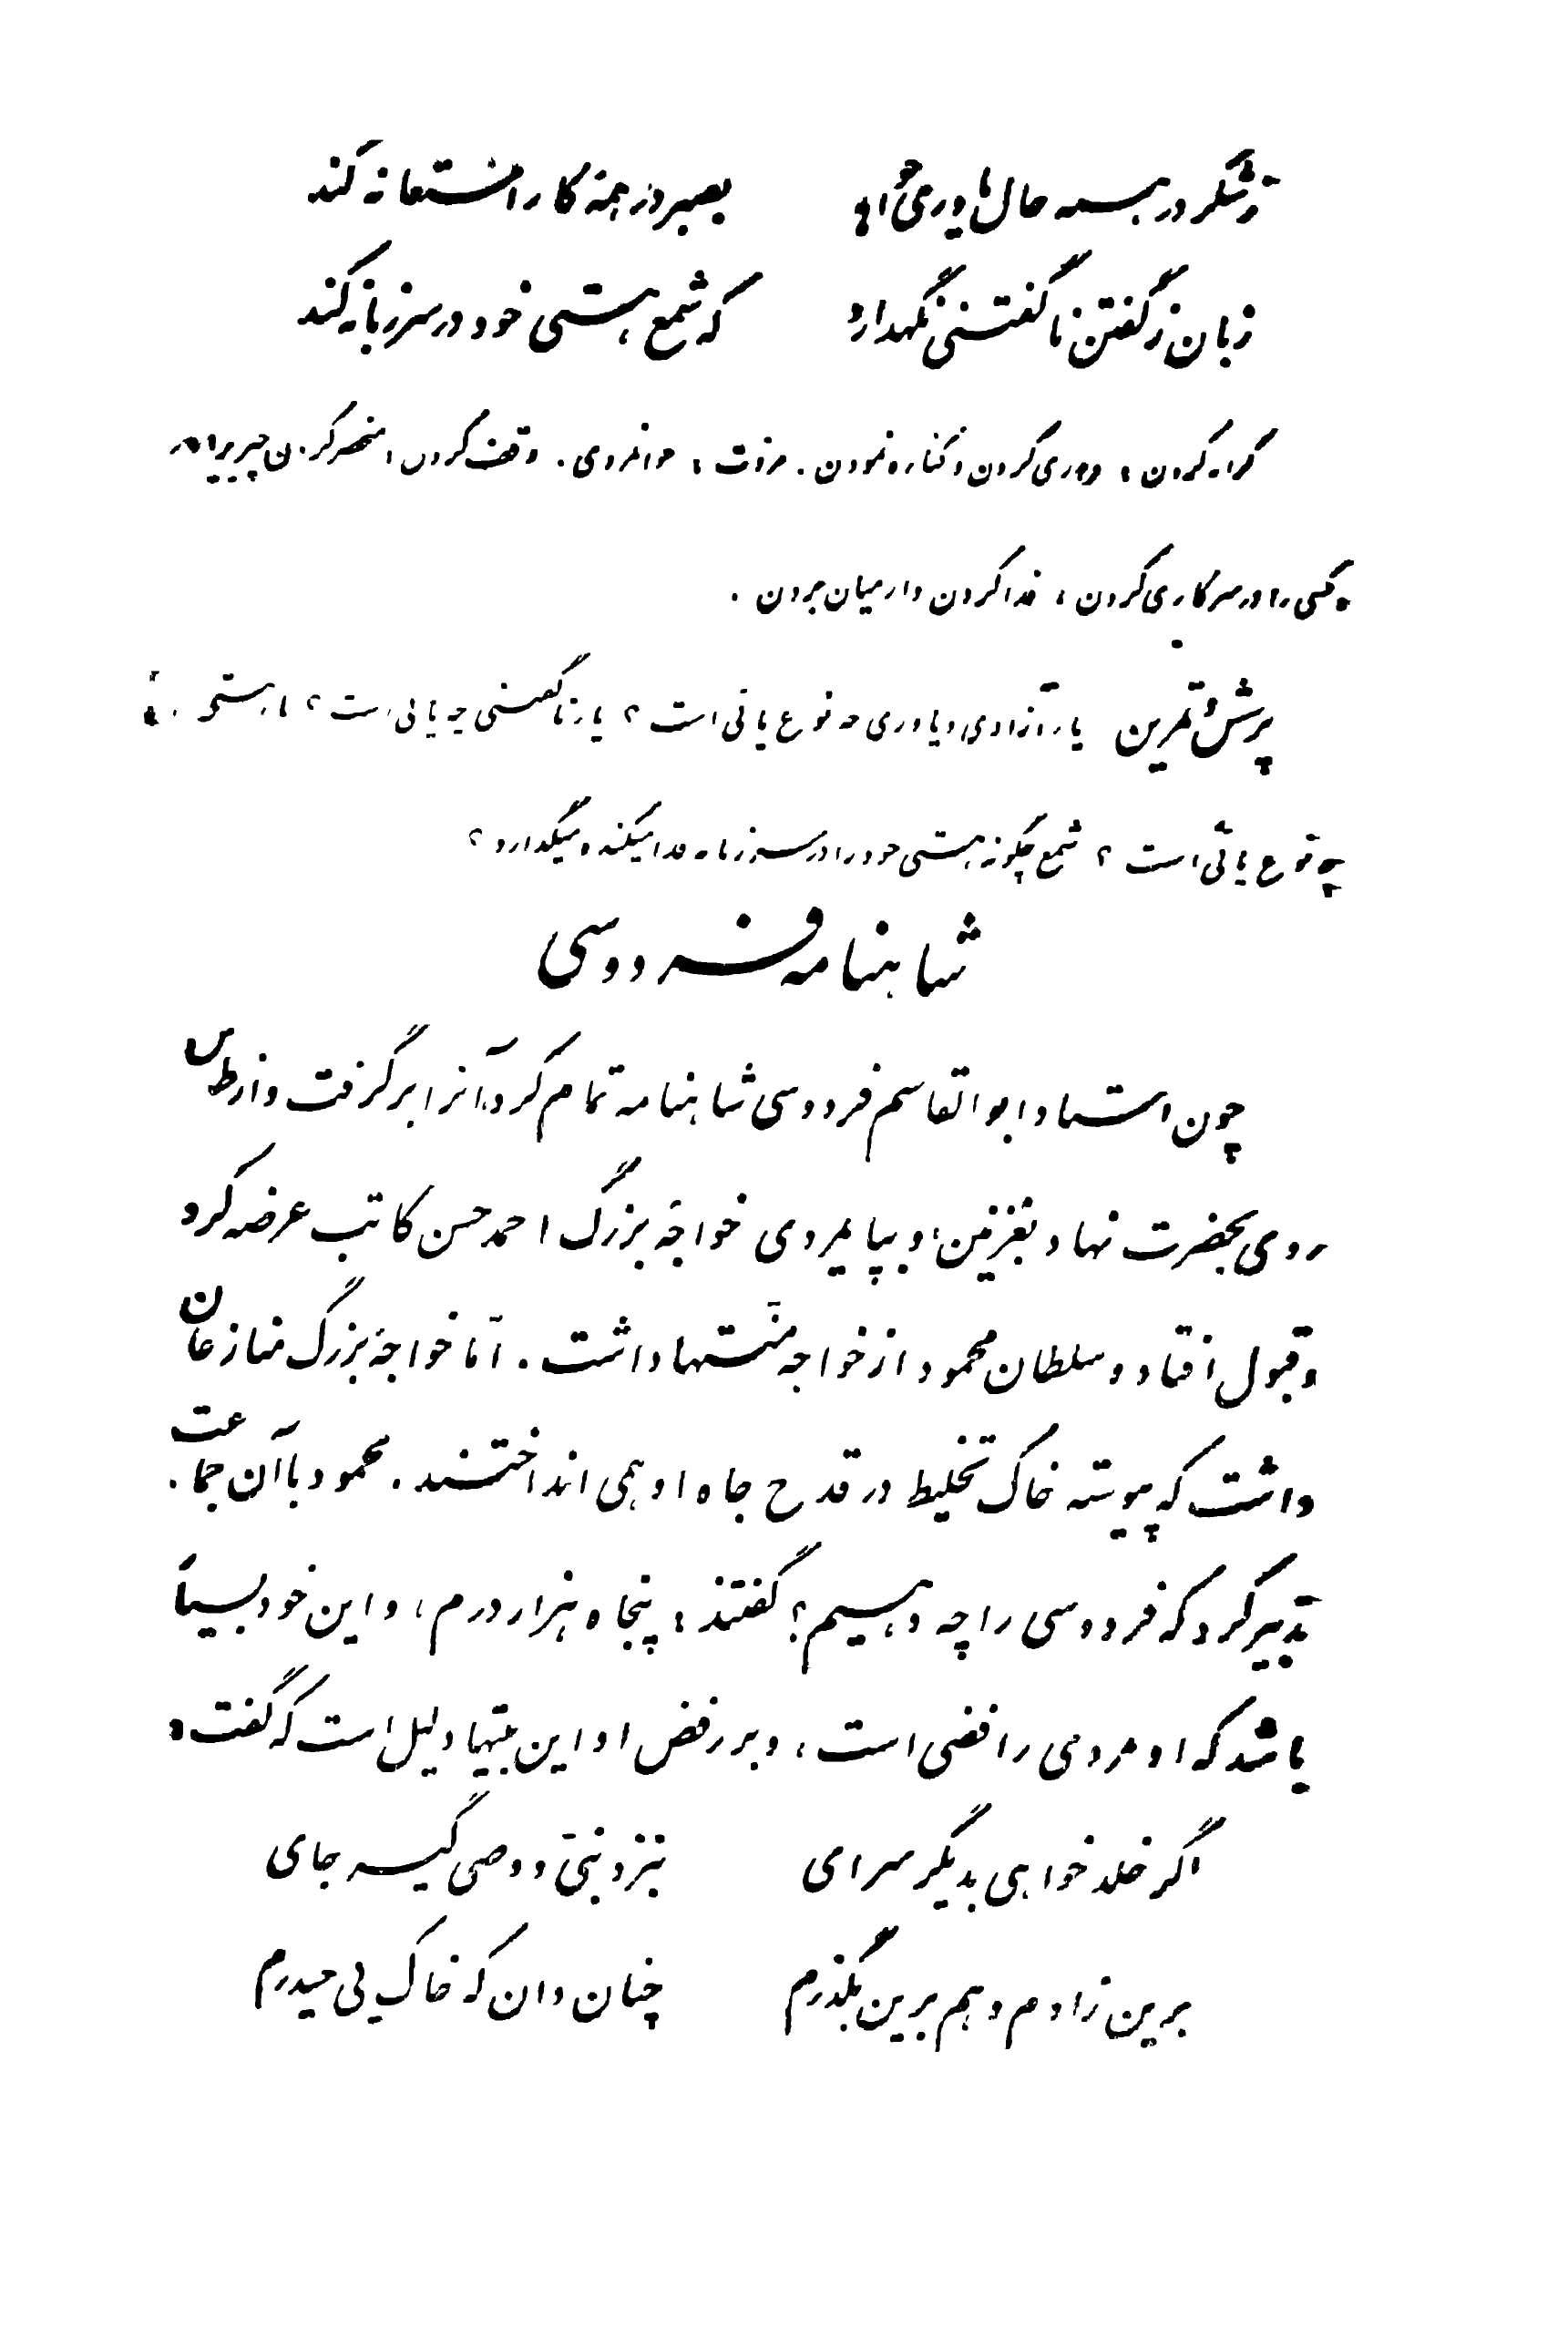 ز شکر در همه حال یاوری خواهد بصبر در همه کار استعانه کند
زبان ز گفتن ناگفتنی نگهدارد که شمع هستی خود در سر زبانه کند
کرانه کردن: دوری کردن و کناره نمودن. مروت: جوانمردی. وقف کردن: منحصر کردن چیزیرا در
و کسی را در سر کاری کردن: فدا کردن و از میان بردن.
پرسش و تمرین یاء آزادی و یاوری چه نوع یائی است؟ یاء ناگفتنی چه یائی است؟ یاء هستی
چه نوع یائی است؟ شمع چگونه هستی خود را در سر زبانه فدا میکند و میگدازد؟
شاهنامه فردوسی
چون استاد ابوالقاسم فردوسی شاهنامه تمام کرد، آنرا برگرفت و از طوس
روی بحضرت نهاد بغزنین، و بپایمردی خواجهٔ بزرگ احمد حسن کاتب عرضه کرد
و قبول افتاد و سلطان محمود از خواجه منّتها داشت. امّا خواجهٔ بزرگ منازعان
داشت که پیوسته خاک تخلیط در قدح جاه او همی انداختند. محمود با آن جماعت
تدبیر کرد که فردوسی را چه دهیم؟ گفتند: پنجاه هزار درم، و این خود بسیار
باشد که او مردی رافضی است، و بر رفض او این بیتها دلیل است که گفت:
اگر خلد خواهی بدیگر سرای بنزد نبیّ و وصی گیر جای
برین زادم و هم برین بگذرم چنان دان که خاک پی حیدرم